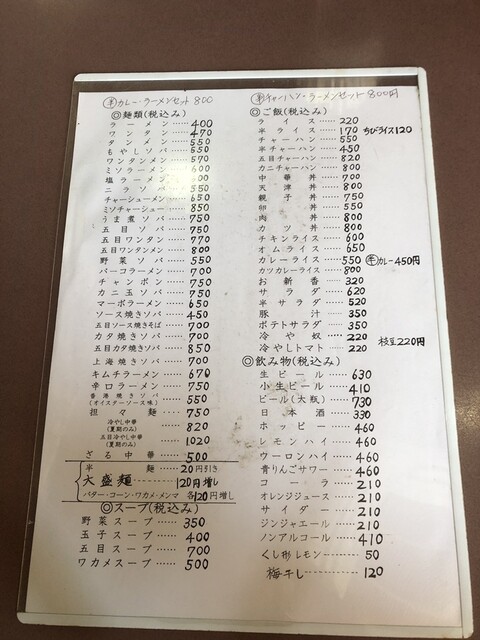 半カレー・ラーメンセット 800
◎麺類(税込み)
ラーメン 400
ワンタン 470
タンメン 550
もやしソバ 550
ワンタンメン 570
ミソラーメン 600
塩ラーメン 600
ニラソバ 550
チャーシューメン 650
ミソチャーシュー 850
うま煮ソバ 750
五目ソバ 750
五目ワンタン 770
五目ワンタンメン 800
野菜ソバ 550
パーコラーメン 700
チャンポン 750
カニ玉ソバ 750
マーボラーメン 650
ソース焼きソバ 450
五目ソース焼きそば 700
カタ焼きソバ 700
五目カタ焼きソバ 850
上海焼きソバ 700
キムチラーメン 670
辛口ラーメン 750
香港焼きソバ
(オイスターソース味) 550
担々麺 750
冷やし中華
(夏期のみ) 820
五目冷やし中華
(夏期のみ) 1020
ざる中華 500
半麺 20円引き
大盛麺 120円増し
バター・コーン・ワカメ・メンマ 各120円増し
◎スープ(税込み)
野菜スープ 350
玉子スープ 400
五目スープ 700
ワカメスープ 500
半チャーハン・ラーメンセット 800円
◎ご飯(税込み)
ライス 220
半ライス 170 ちびライス120
チャーハン 550
半チャーハン 450
五目チャーハン 820
カニチャーハン 800
中華丼 700
天津丼 800
親子丼 750
卵丼 550
肉丼 800
カツ丼 800
チキンライス 600
オムライス 650
カレーライス 550 半カレー450円
カツカレーライス 800
お新香 320
サラダ 620
半サラダ 520
豚汁 350
ポテトサラダ 350
冷や奴 220
冷やしトマト 220 枝豆220円
◎飲み物(税込み)
生ビール 630
小生ビール 410
ビール(大瓶) 730
日本酒 330
ホッピー 460
レモンハイ 460
ウーロンハイ 460
青りんごサワー 460
コーラ 210
オレンジジュース 210
サイダー 210
ジンジャエール 210
ノンアルコール 410
くし形レモン 50
梅干し 120